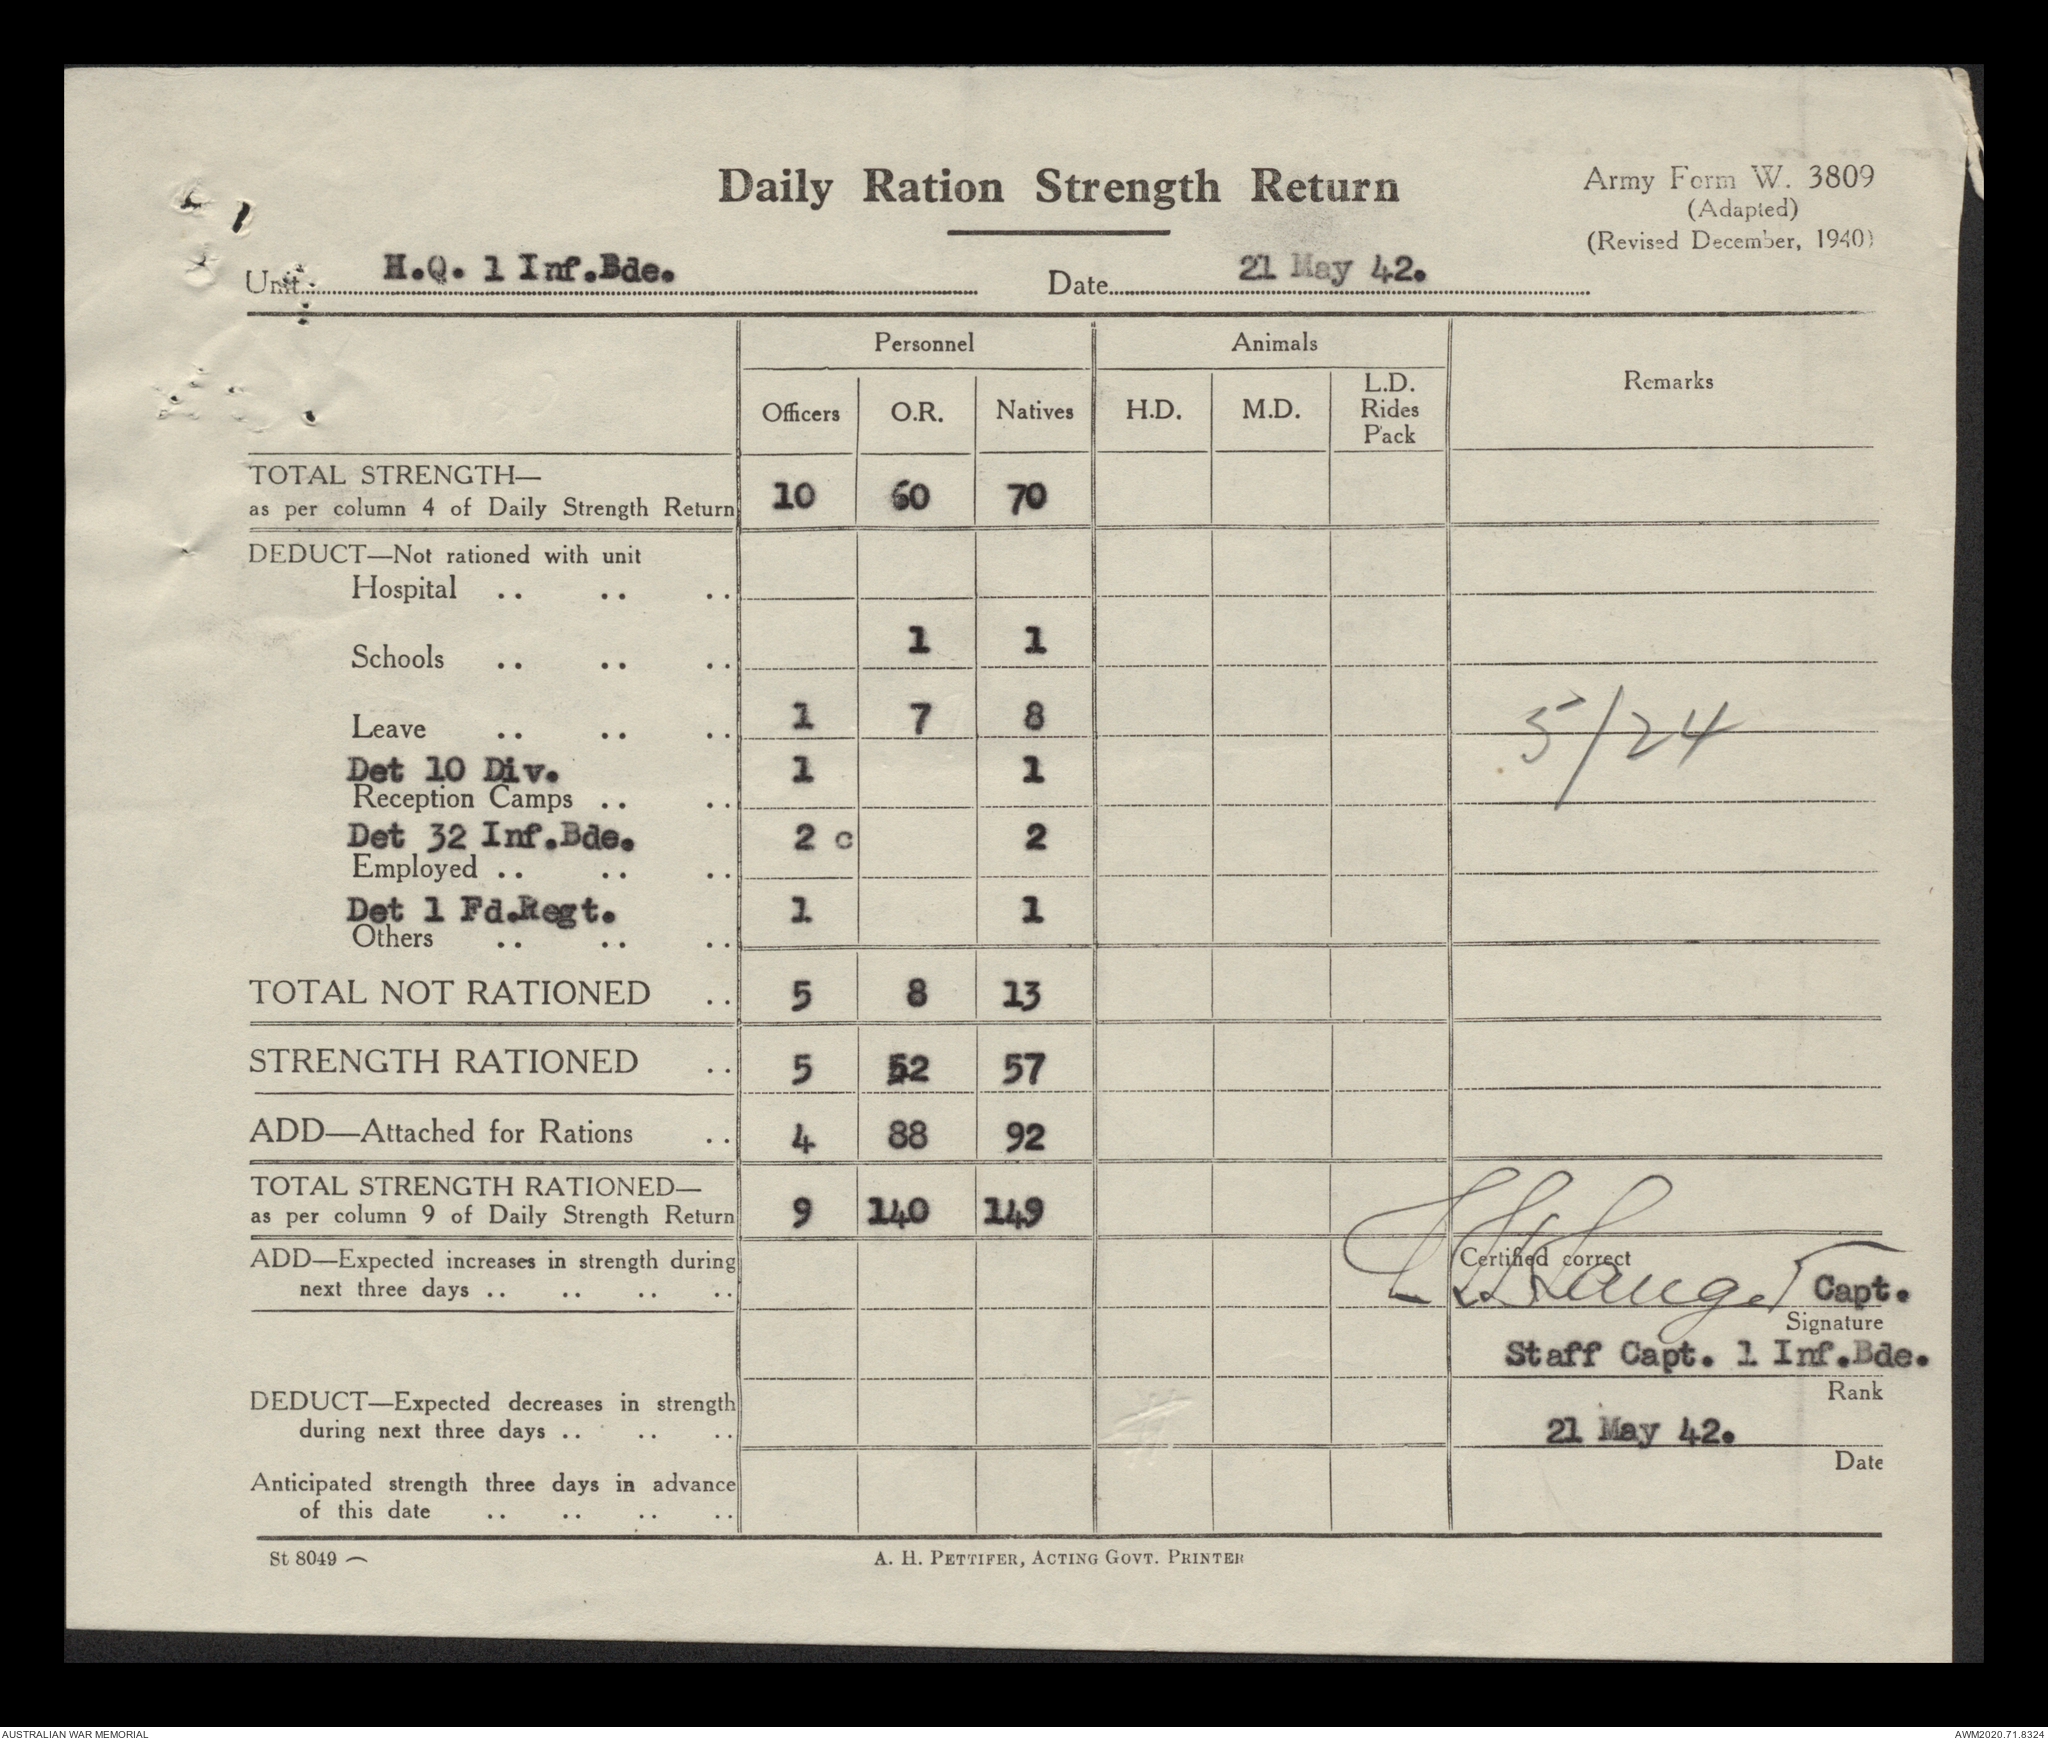 Daily Ration Strength Return
Army Form W. 3809
(Adapted)
(Revised December, 1940)
Unit H.Q. 1 Inf.Bde. Date 21 May 42.
Personnel Animals Remarks
Officers O.R. Natives H.D. M.D. L.D. Rides Pack
TOTAL STRENGTH—
as per column 4 of Daily Strength Return 10 60 70
DEDUCT—Not rationed with unit
Hospital .. .. ..
Schools .. .. .. 1 1
Leave .. .. .. 1 7 8
5/24
Det 10 Div. 1 1
Reception Camps .. ..
Det 32 Inf.Bde. 2 c 2
Employed .. .. ..
Det 1 Fd.Regt. 1 1
Others .. .. ..
TOTAL NOT RATIONED .. 5 8 13
STRENGTH RATIONED .. 5 52 57
ADD—Attached for Rations .. 4 88 92
TOTAL STRENGTH RATIONED—
as per column 9 of Daily Strength Return 9 140 149
ADD—Expected increases in strength during
next three days .. .. .. ..
Certified correct
Capt.
Signature
Staff Capt. 1 Inf.Bde.
Rank
DEDUCT—Expected decreases in strength
during next three days .. .. ..
21 May 42.
Date
Anticipated strength three days in advance
of this date .. .. .. ..
St 8049
A. H. PETTIFER, ACTING GOVT. PRINTER
AUSTRALIAN WAR MEMORIAL
AWM2020.71.8324